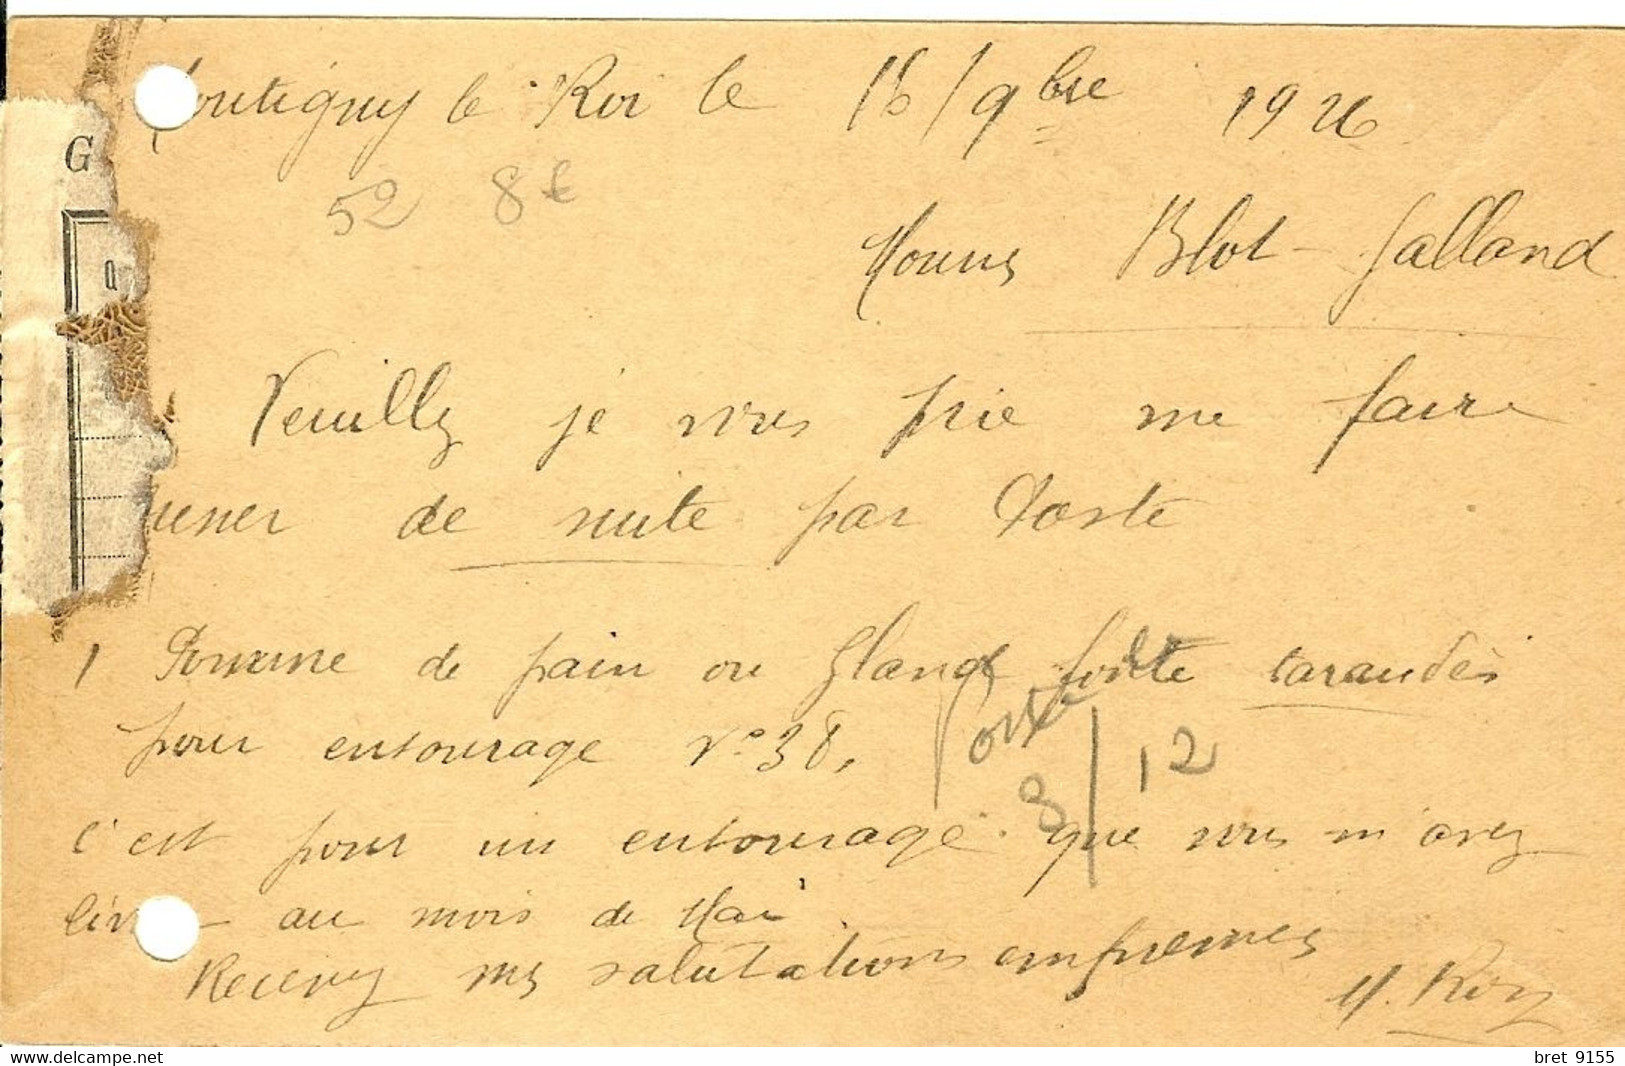 Montigny le Roi le 16/9bre 1926
G
52 8€
Blot-Galland
Veuillez je vous prie me faire
de suite par Poste
1 Pomme de pain ou Gland fonte taraudés
pour entourage No 38,
Poste
3/12
c'est pour un entourage que vous m'avez
livré au mois de Mai.
Recevez mes salutations empressées
M. Roy
bret 9155